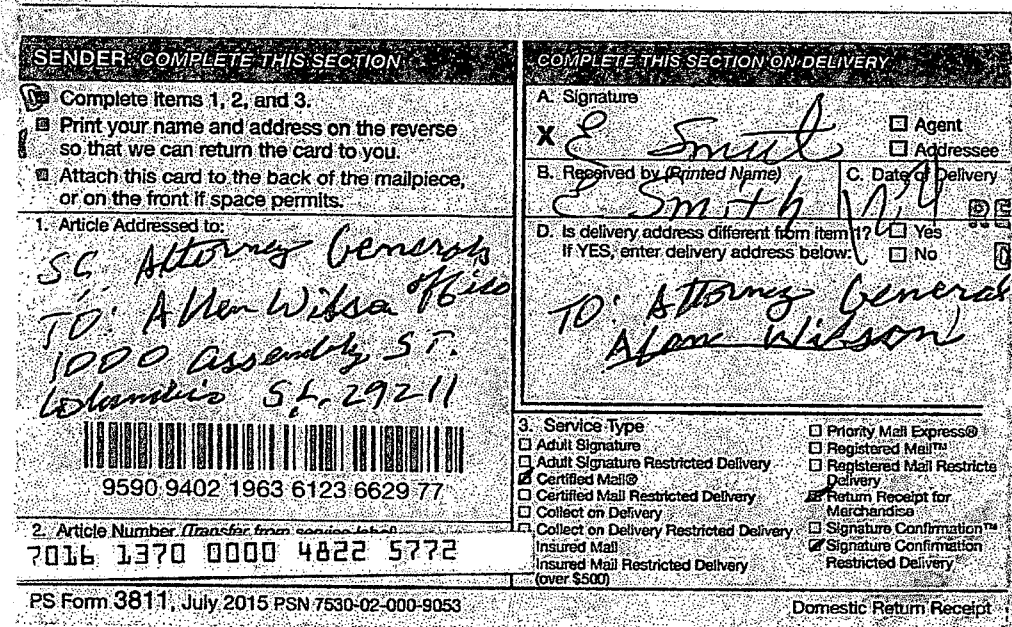 SENDER: COMPLETE THIS SECTION
Complete items 1, 2, and 3.
Print your name and address on the reverse
so that we can return the card to you.
Attach this card to the back of the mailpiece,
or on the front if space permits.
1. Article Addressed to:
S.C. Attorney Generals
Office
TO: Allen Wilson
1000 Assembly ST.
S.C. 29211
9590 9402 1963 6123 6629 77
2. Article Number (Transfer from service label)
7016 1370 0000 4822 5772
PS Form 3811, July 2015 PSN 7530-02-000-9053
COMPLETE THIS SECTION ON DELIVERY
A. Signature
X E Smith
Agent
Addressee
B. Received by (Printed Name)
E Smith
C. Date of Delivery
D. Is delivery address different from item 1? Yes
If YES, enter delivery address below: No
TO: Attorney General
Alan Wilson
3. Service Type
Adult Signature
Adult Signature Restricted Delivery
Certified Mail®
Certified Mail Restricted Delivery
Collect on Delivery
Collect on Delivery Restricted Delivery
Insured Mail
Insured Mail Restricted Delivery
(over $500)
Priority Mail Express®
Registered Mail™
Registered Mail Restricte
Delivery
Return Receipt for
Merchandise
Signature Confirmation™
Signature Confirmation
Restricted Delivery
Domestic Return Receipt